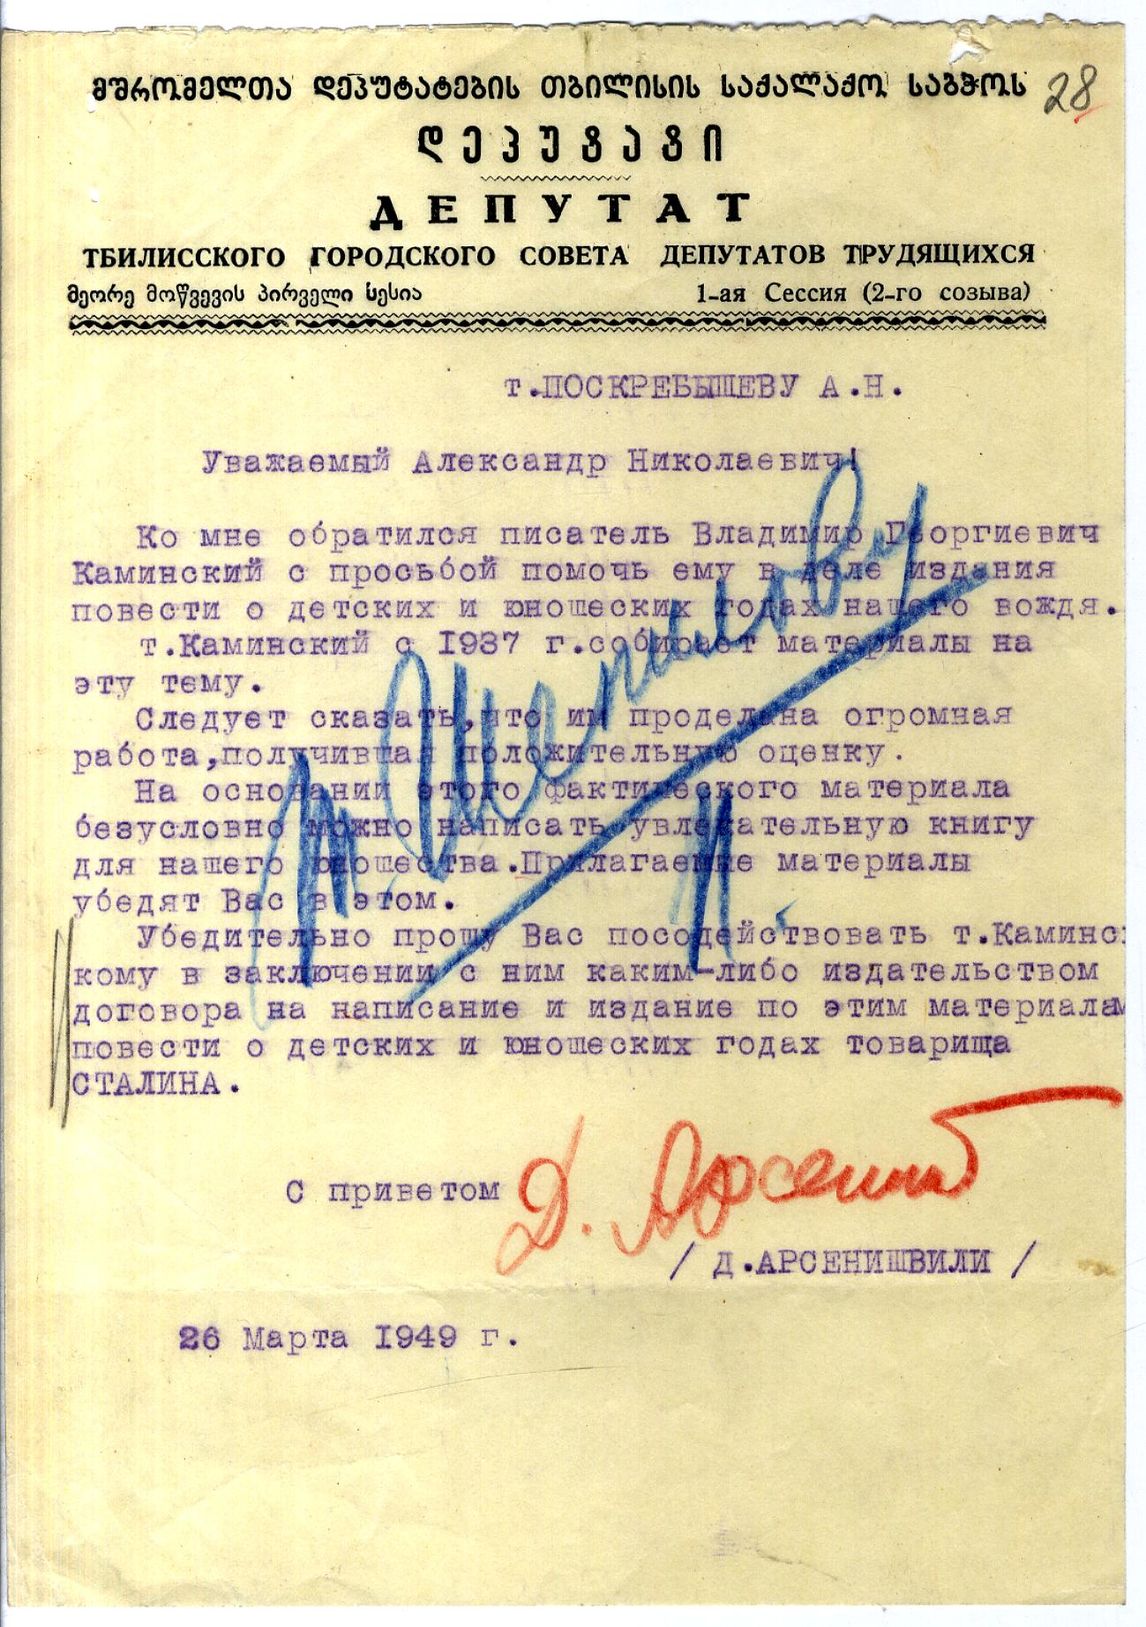 მშრომელთა დეპუტატების თბილისის საქალაქო საბჭოს
28
დეპუტატი
ДЕПУТАТ
ТБИЛИССКОГО ГОРОДСКОГО СОВЕТА ДЕПУТАТОВ ТРУДЯЩИХСЯ
მეორე მოწვევის პირველი სესია 1-ая Сессия (2-го созыва)
т.ПОСКРЕБЫШЕВУ А.Н.
Уважаемый Александр Николаевич!
Ко мне обратился писатель Владимир Георгиевич
Каминский с просьбой помочь ему в деле издания
повести о детских и юношеских годах нашего вождя.
т.Каминский с 1937 г.собирает материалы на
эту тему.
Следует сказать,что им проделана огромная
работа,получившая положительную оценку.
На основании этого фактического материала
безусловно можно написать увлекательную книгу
для нашего юношества.Прилагаемые материалы
убедят Вас в этом.
Убедительно прошу Вас посодействовать т.Каминс-
кому в заключении с ним каким-либо издательством
договора на написание и издание по этим материалам
повести о детских и юношеских годах товарища
СТАЛИНА.
т. Шепилову
С приветом Д. Арсениш
/ Д.АРСЕНИШВИЛИ /
26 Марта 1949 г.